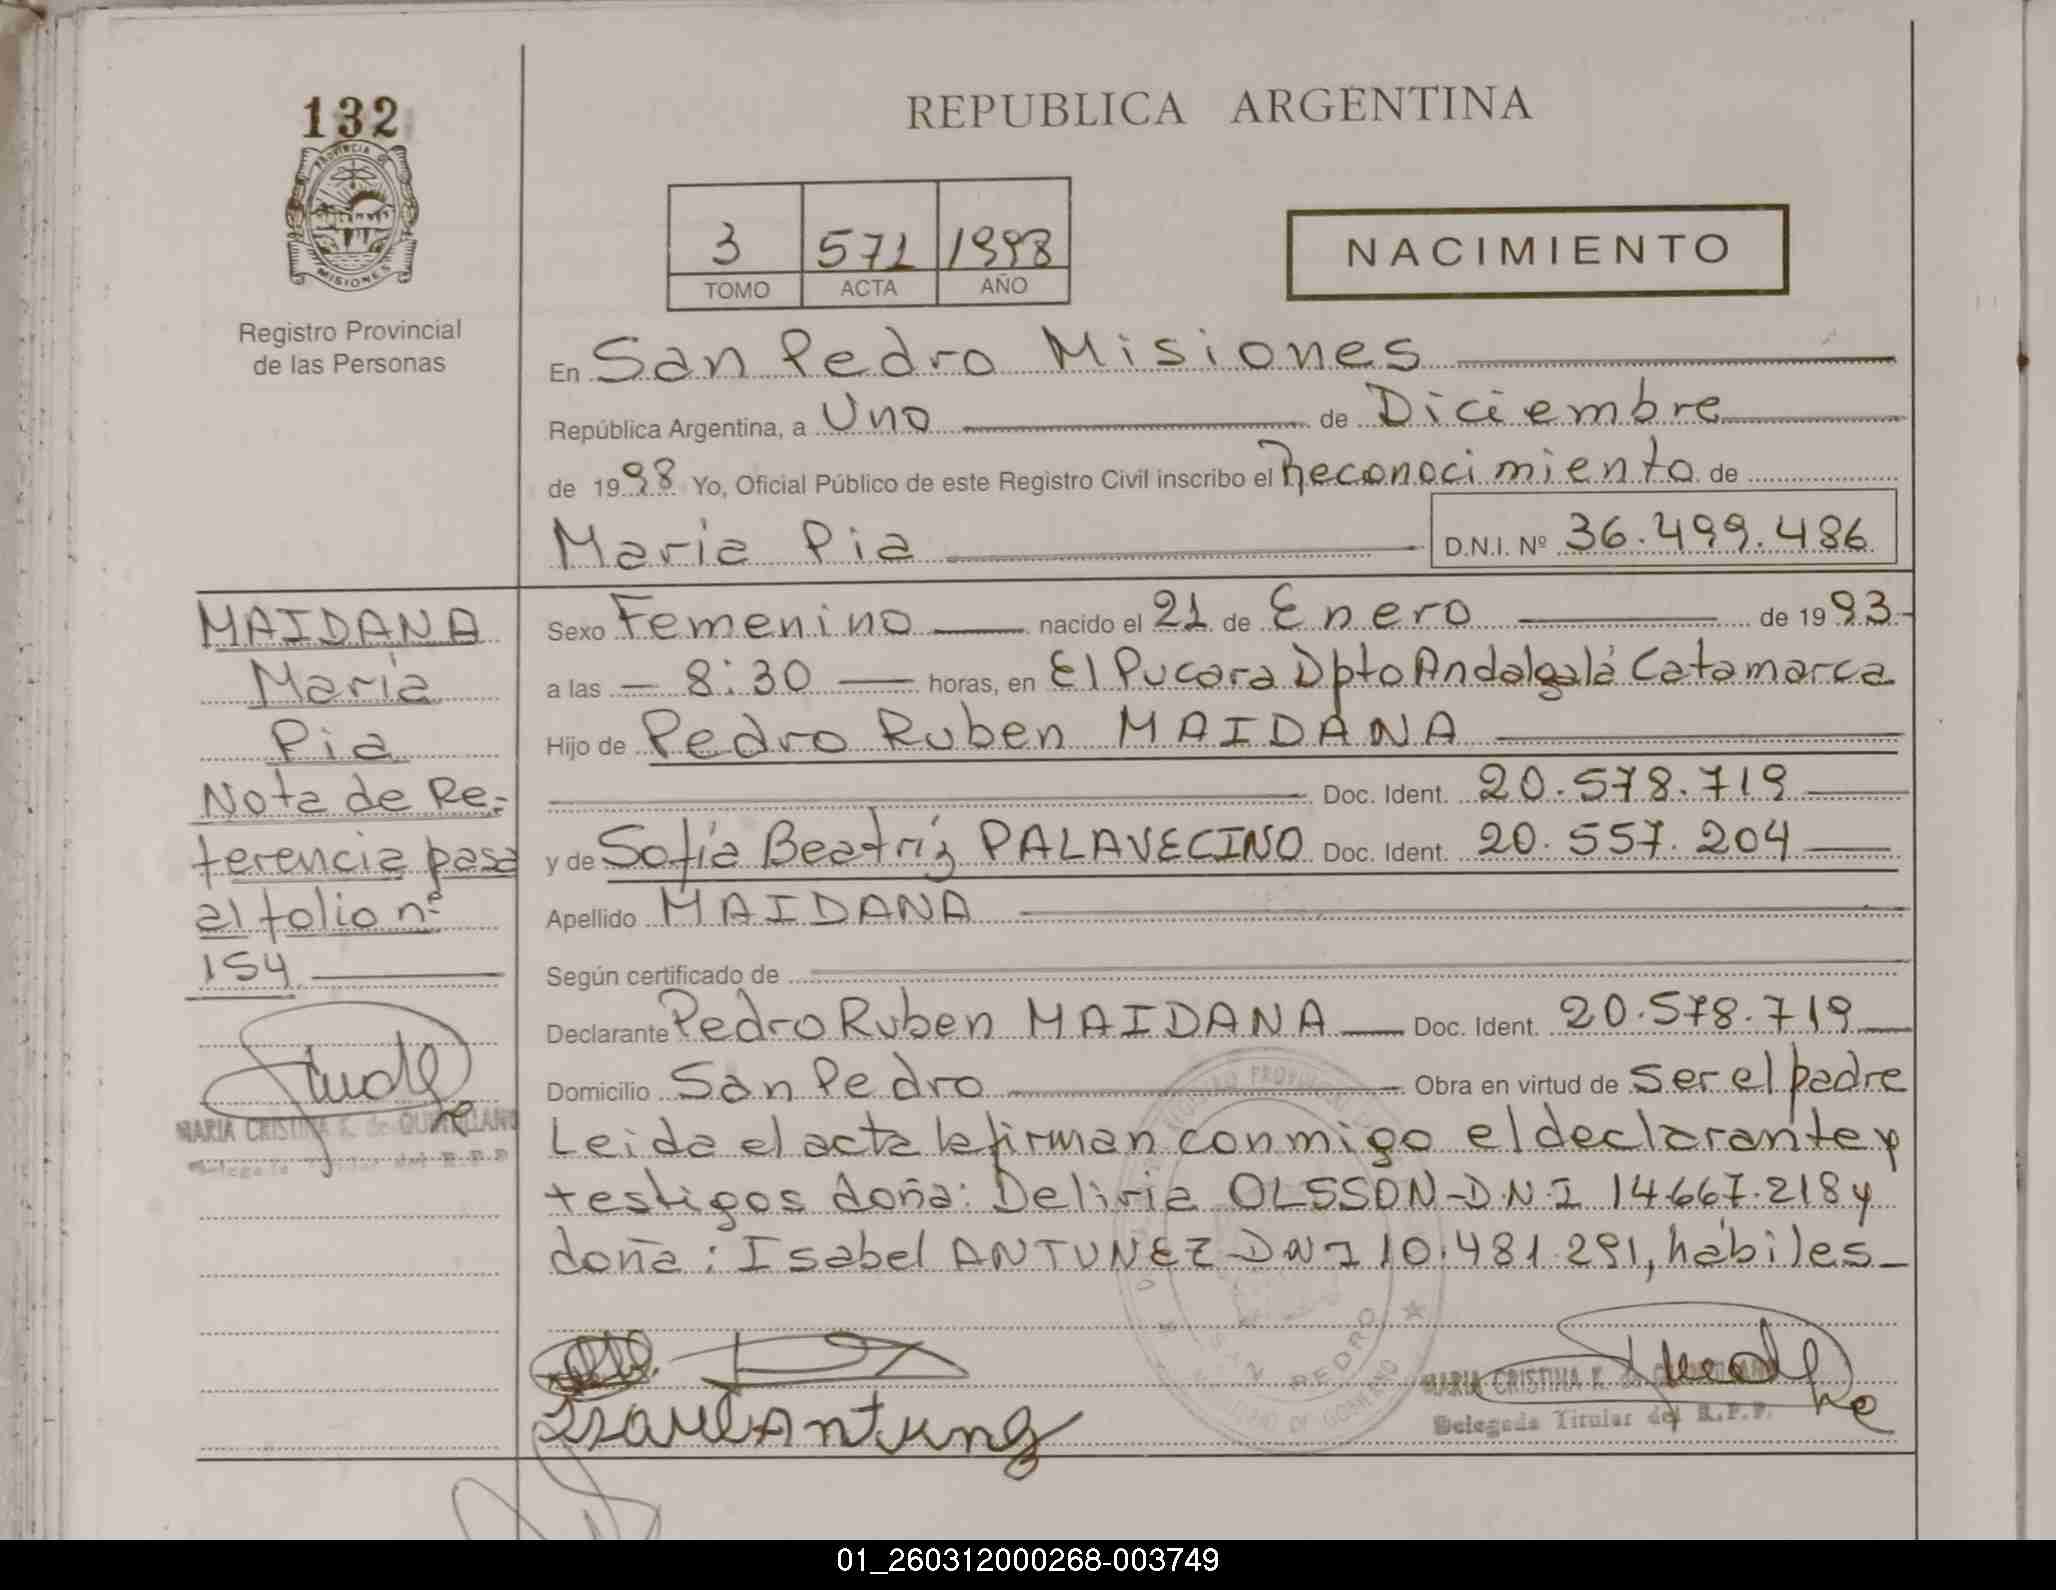 132
PROVINCIA DE
MISIONES
Registro Provincial
de las Personas
REPUBLICA ARGENTINA
3 571 1998
TOMO ACTA AÑO
NACIMIENTO
En San Pedro Misiones
República Argentina, a Uno de Diciembre
de 1998 Yo, Oficial Público de este Registro Civil inscribo el Reconocimiento de
Maria Pia D.N.I. Nº 36.499.486
Sexo Femenino nacido el 21 de Enero de 1993
a las 8:30 horas, en El Pucara Dpto Andalgalá Catamarca
Hijo de Pedro Ruben MAIDANA
Doc. Ident. 20.578.719
y de Sofía Beatríz PALAVECINO Doc. Ident. 20.557.204
Apellido MAIDANA
Según certificado de
Declarante Pedro Ruben MAIDANA Doc. Ident. 20.578.719
Domicilio San Pedro Obra en virtud de ser el padre
Leida el acta la firman conmigo el declarante y
testigos doña: Deliria OLSSON-D.N.I 14.667.218 y
doña: Isabel ANTUNEZ DNI 10.481.291, hábiles
MAIDANA
María
Pia
Nota de Re-
ferencia pasa
al folio nº
154
MARIA CRISTINA K. de
Delegada Titular del R.P.P.
SAN PEDRO
MARIA CRISTINA K. de
Delegada Titular del R.P.P.
01_260312000268-003749